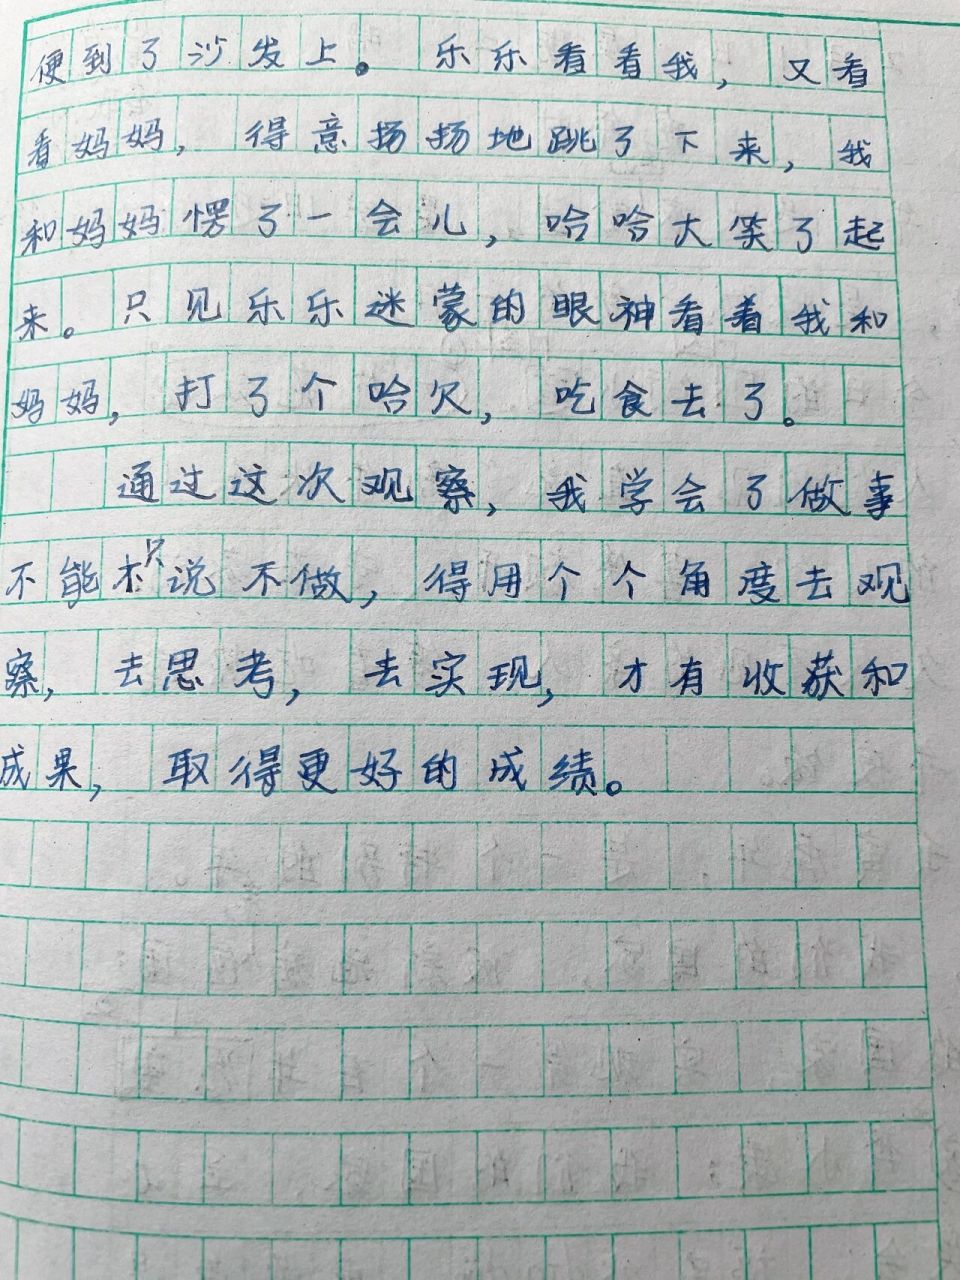 便到了沙发上。乐乐看看我，又看
看妈妈，得意扬扬地跳了下来，我
和妈妈愣了一会儿，哈哈大笑了起
来。只见乐乐迷蒙的眼神看着我和
妈妈，打了个哈欠，吃食去了。
通过这次观察，我学会了做事
不能只说不做，得用个个角度去观
察，去思考，去实现，才有收获和
成果，取得更好的成绩。